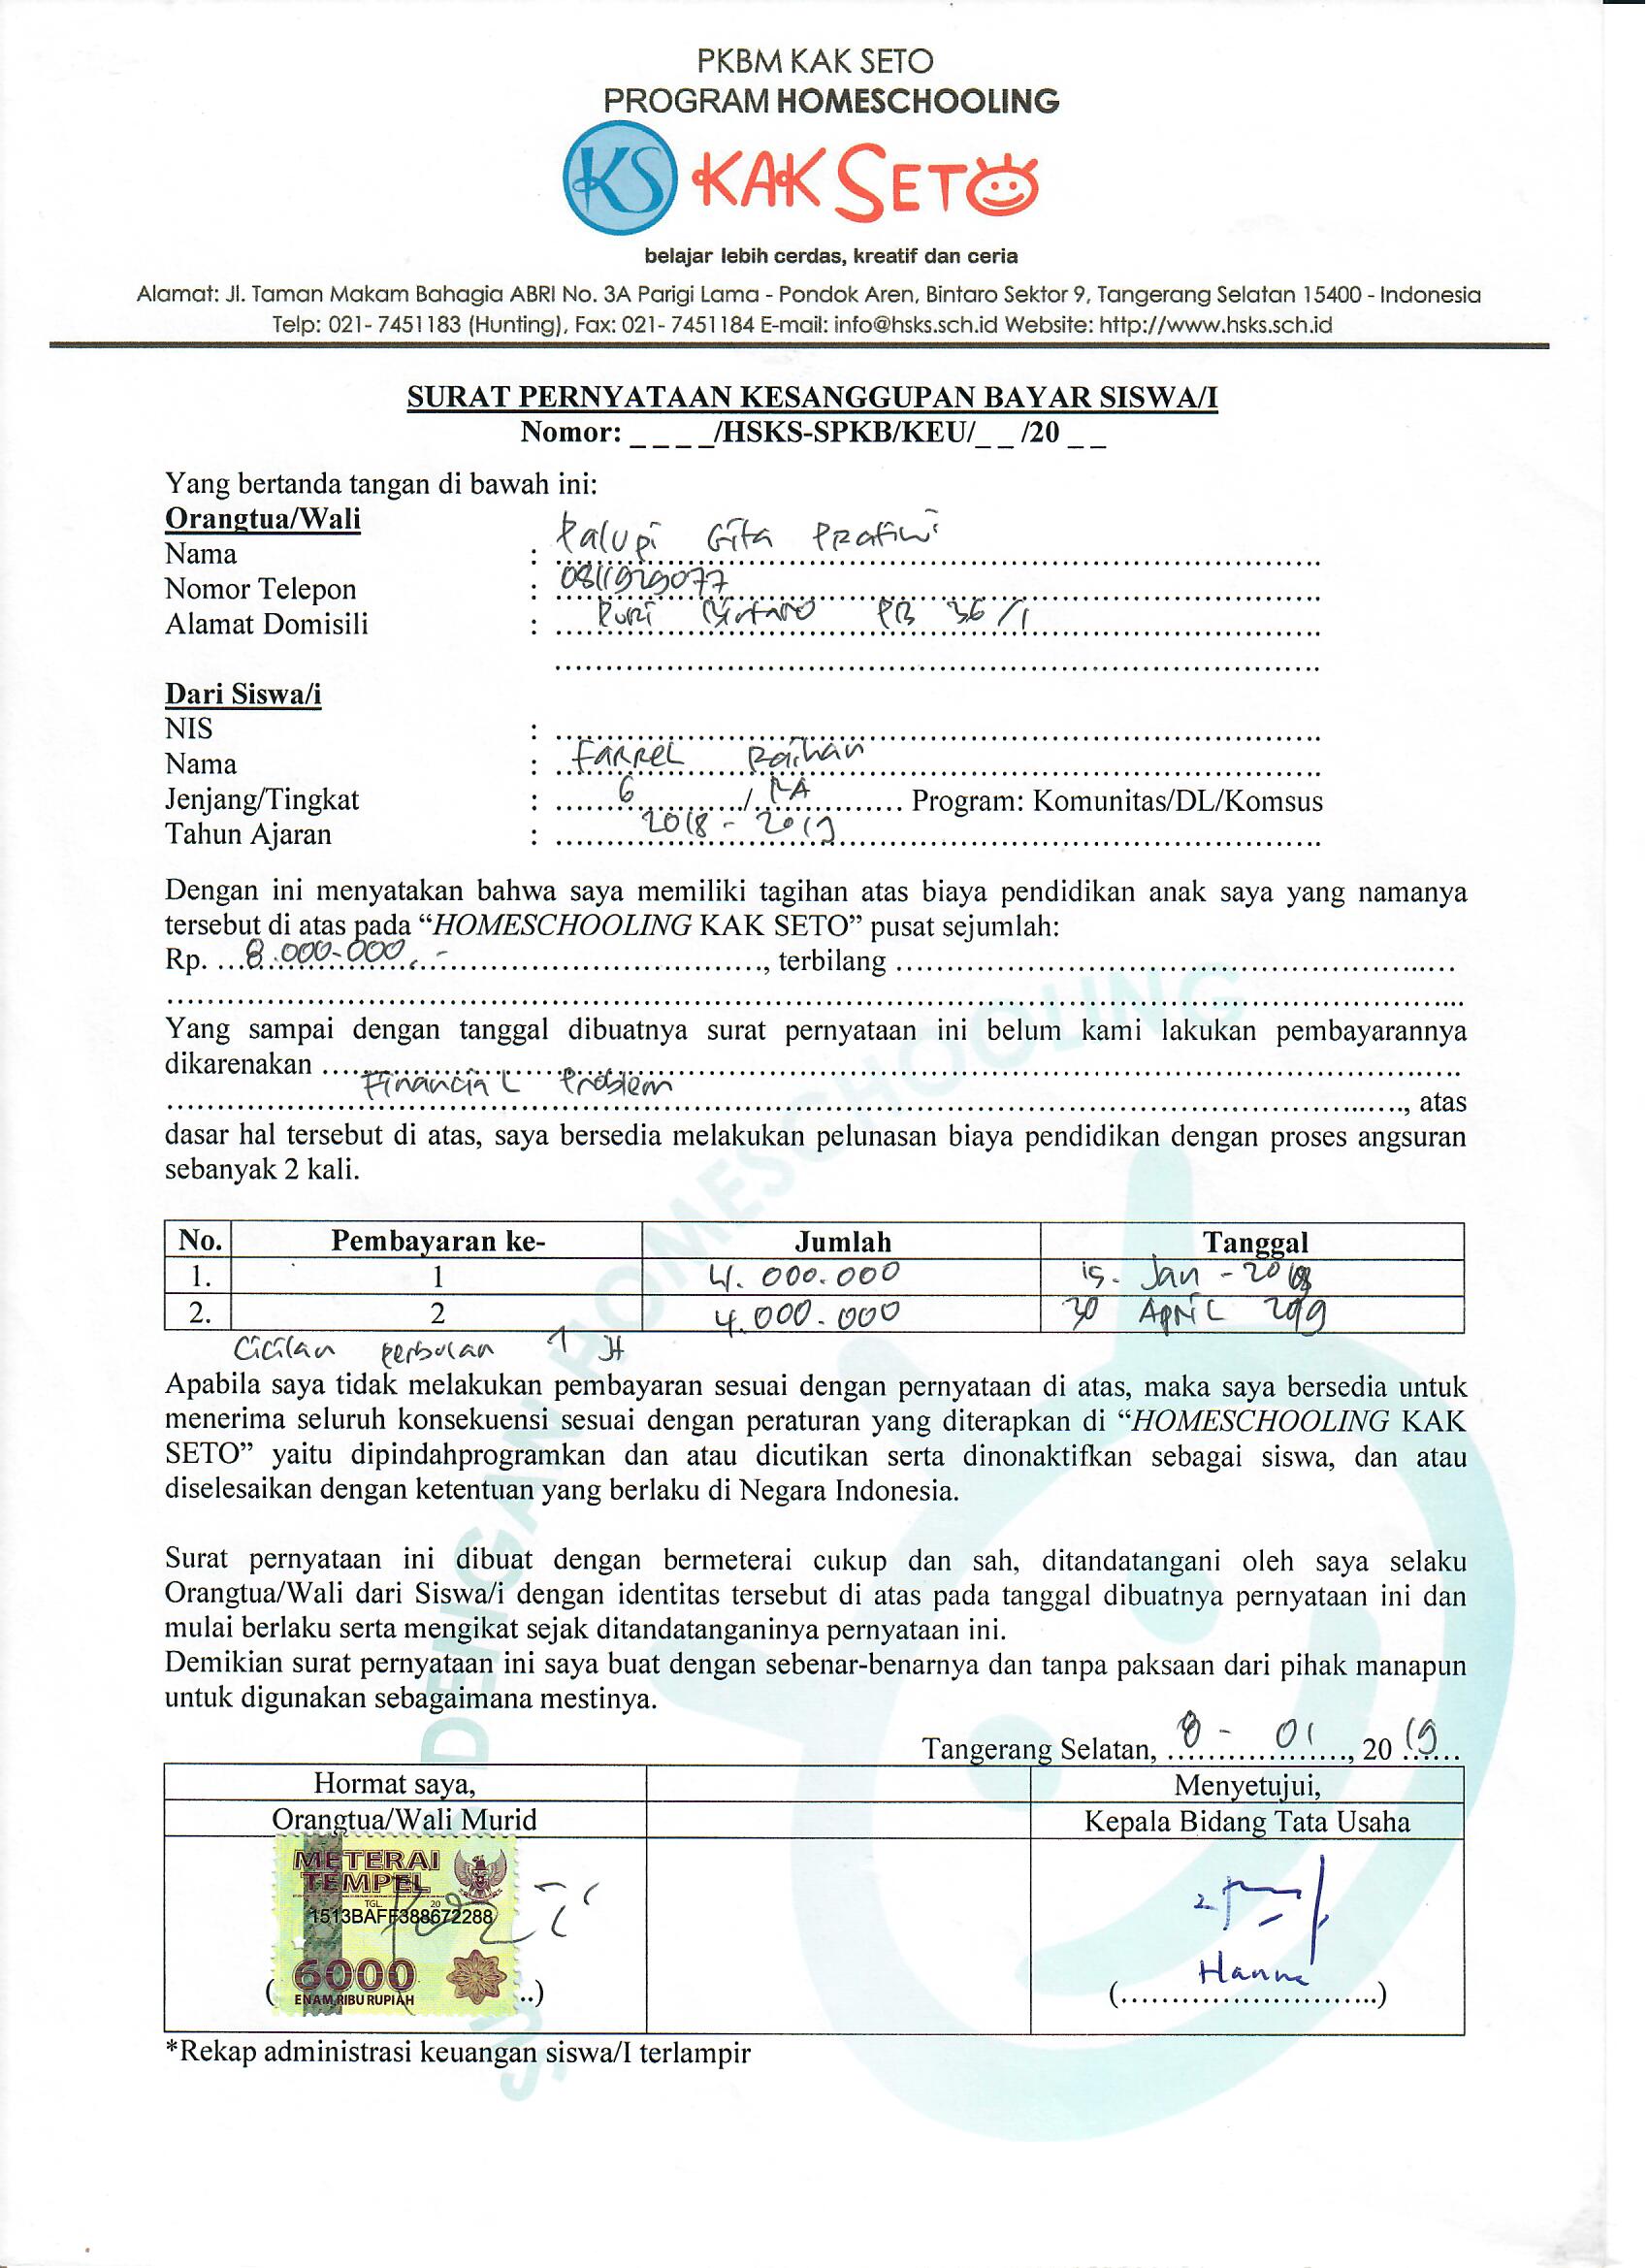 PKBM KAK SETO
PROGRAM HOMESCHOOLING
KS KAK SETO
belajar lebih cerdas, kreatif dan ceria
Alamat: Jl. Taman Makam Bahagia ABRI No. 3A Parigi Lama - Pondok Aren, Bintaro Sektor 9, Tangerang Selatan 15400 - Indonesia
Telp: 021- 7451183 (Hunting), Fax: 021- 7451184 E-mail: info@hsks.sch.id Website: http://www.hsks.sch.id
SURAT PERNYATAAN KESANGGUPAN BAYAR SISWA/I
Nomor: _ _ _ _/HSKS-SPKB/KEU/_ _ /20 _ _
Yang bertanda tangan di bawah ini:
Orangtua/Wali
Nama : Palupi Gita Pratiwi
Nomor Telepon : 0811929077
Alamat Domisili : Puri Bintaro PB 36/1
Dari Siswa/i
NIS :
Nama : Farrel Raihan
Jenjang/Tingkat : 6 / Program: Komunitas/DL/Komsus
Tahun Ajaran : 2018 - 2019
Dengan ini menyatakan bahwa saya memiliki tagihan atas biaya pendidikan anak saya yang namanya
tersebut di atas pada “HOMESCHOOLING KAK SETO” pusat sejumlah:
Rp. 8.000.000,- , terbilang
Yang sampai dengan tanggal dibuatnya surat pernyataan ini belum kami lakukan pembayarannya
dikarenakan
Financial Problem , atas
dasar hal tersebut di atas, saya bersedia melakukan pelunasan biaya pendidikan dengan proses angsuran
sebanyak 2 kali.
No. Pembayaran ke- Jumlah Tanggal
1. 1 4.000.000 15 - Jan -
2. 2 4.000.000 30 April 2019
Cicilan perbulan 1 Jt
Apabila saya tidak melakukan pembayaran sesuai dengan pernyataan di atas, maka saya bersedia untuk
menerima seluruh konsekuensi sesuai dengan peraturan yang diterapkan di “HOMESCHOOLING KAK
SETO” yaitu dipindahprogramkan dan atau dicutikan serta dinonaktifkan sebagai siswa, dan atau
diselesaikan dengan ketentuan yang berlaku di Negara Indonesia.
Surat pernyataan ini dibuat dengan bermeterai cukup dan sah, ditandatangani oleh saya selaku
Orangtua/Wali dari Siswa/i dengan identitas tersebut di atas pada tanggal dibuatnya pernyataan ini dan
mulai berlaku serta mengikat sejak ditandatanganinya pernyataan ini.
Demikian surat pernyataan ini saya buat dengan sebenar-benarnya dan tanpa paksaan dari pihak manapun
untuk digunakan sebagaimana mestinya.
Tangerang Selatan, 8 - 01, 2019
Hormat saya, Menyetujui,
Orangtua/Wali Murid Kepala Bidang Tata Usaha
METERAI
TEMPEL
TGL. 20
1513BAFF388672288
6000
ENAM RIBU RUPIAH
Hanna
*Rekap administrasi keuangan siswa/I terlampir
DENGAN HOMESCHOOLING